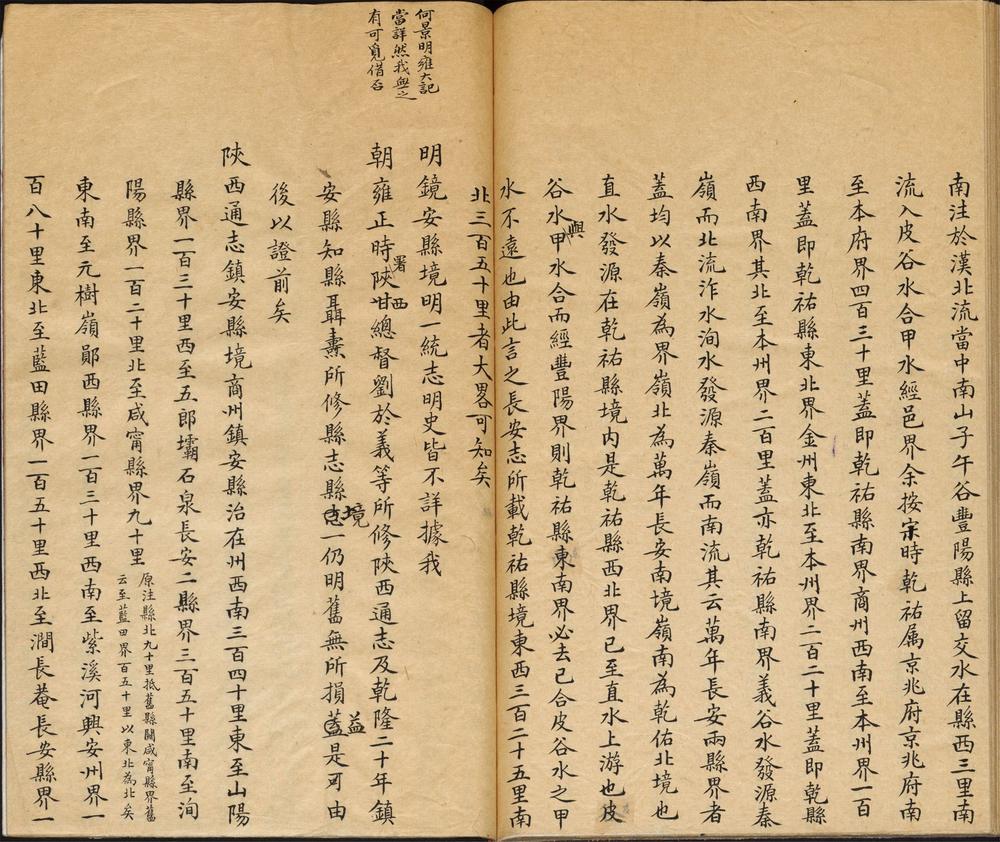 南注於漢北流當中南山子午谷豐陽縣上留交水在縣西三里南
流入皮谷水合甲水經邑界余按宗時乾祐属京兆府京兆府南
至本府界四百三十里蓋即乾祐縣南界商州西南至本州界一百
里蓋即乾祐縣東北界金州東北至本州界二百二十里蓋即乾縣
西南界其北至本州界二百里蓋亦乾祐縣南界義谷水發源秦
嶺而北流泎水洵水發源秦嶺而南流其云萬年長安兩縣界者
蓋均以秦嶺為界嶺北為萬年長安南境嶺南為乾佑北境也
直水發源在乾祐縣境内是乾祐縣西北界已至直水上游也皮
谷水與甲水合而經豐陽界則乾祐縣東南界必去已合皮谷水之甲
水不遠也由此言之長安志所載乾祐縣境東西三百二十五里南
北三百五十里者大畧可知矣
何景明雍大記
當詳然我無之
有可覓借否
明鏡安縣境明一統志明史皆不詳據我
朝雍正時署陜西總督劉於義等所修陜西通志及乾隆二十年鎮
安縣知縣聶燾所修縣志縣境一仍明舊無所損益是可由
後以證前矣
陜西通志鎮安縣境商州鎮安縣治在州西南三百四十里東至山陽
縣界一百三十里西至五郎壩石泉長安二縣界三百五十里南至洵
陽縣界一百二十里北至咸甯縣界九十里
原注縣北九十里抵舊縣關咸甯縣界舊
云至藍田界百五十里以東北為北矣
東南至元樹嶺鄖西縣界一百三十里西南至紫溪河興安州界一
百八十里東北至藍田縣界一百五十里西北至澗長菴長安縣界一